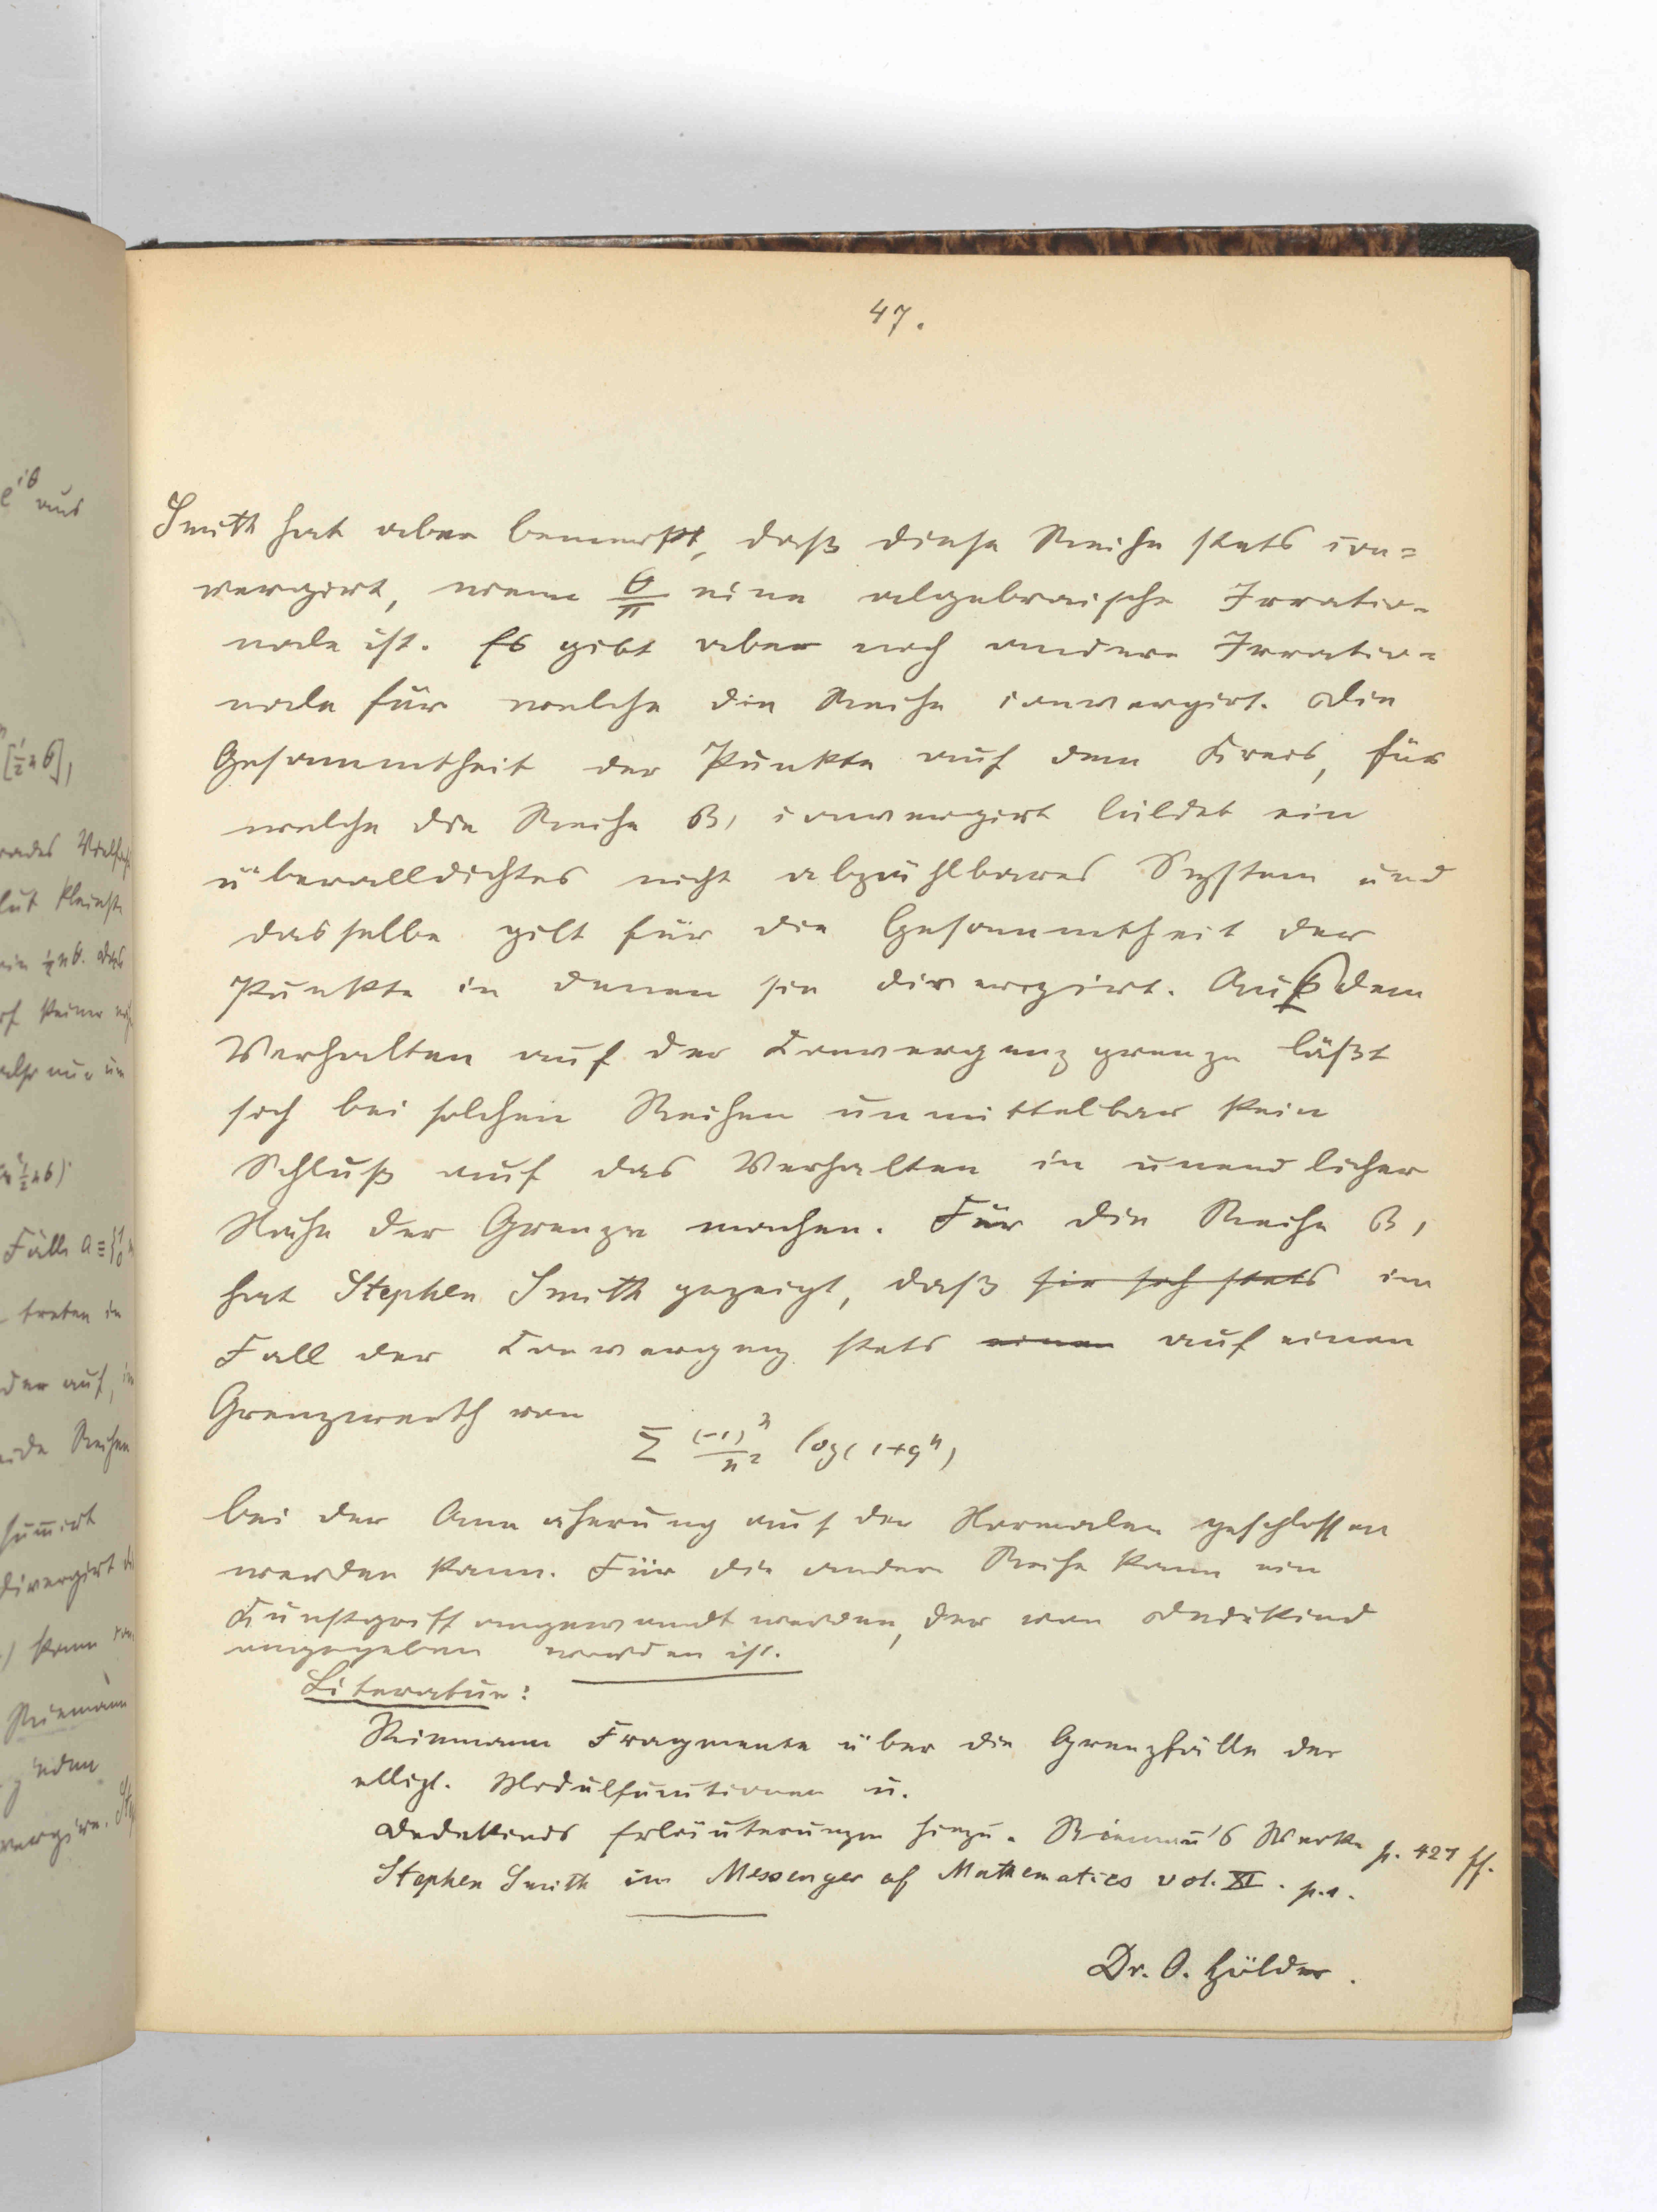 47.
Smith hat aber bemerkt, daß diese Reihe stets con=
vergirt, wenn θ/π eine algebraische Irratio-
nale ist. Es gibt aber noch andere Irratio=
nale für welche die Reihe convergirt. Die
Gesammtheit der Punkte auf dem Kreis, für
welche die Reihe B, convergirt bildet ein
überalldichtes nicht abzählbares System und
dasselbe gilt für die Gesammtheit der
Punkte in denen sie divergirt. Aus dem
Verhalten auf der Convergenzgrenze läßt
sich bei solchen Reihen unmittelbar kein
Schluß auf das Verhalten in unendlicher
Nähe der Grenze machen. Für die Reihe B,
hat Stephen Smith gezeigt, daß sie sich stets im
Fall der Convergenz stets einen auf einen
Grenzwerth von
Σ (-1)^n/n² log(1+q^n)
bei der Annäherung auf der Normalen geschlossen
werden kann. Für die andere Reihe kann ein
Kunstgriff angewandt werden, der von Dedekind
angegeben worden ist.
Literatur:
Riemann Fragmente über die Grenzfälle der
ellipt. Modulfunctionen u.
Dedekinds Erläuterungen hiezu. Riemann's Werke p. 427 ff.
Stephen Smith im Messenger of Mathematics vol. XI. p.1.
Dr. O. Hölder.
e^{iθ} aus
[½nθ],
rades Vielfach
lut kleinste
ein ½nθ. das
rf keiner
also nur um
Fälle a ≡ {1 0
treten in
der auf, in
eide Reihen
summirt
divergirt
) kann
Riemann